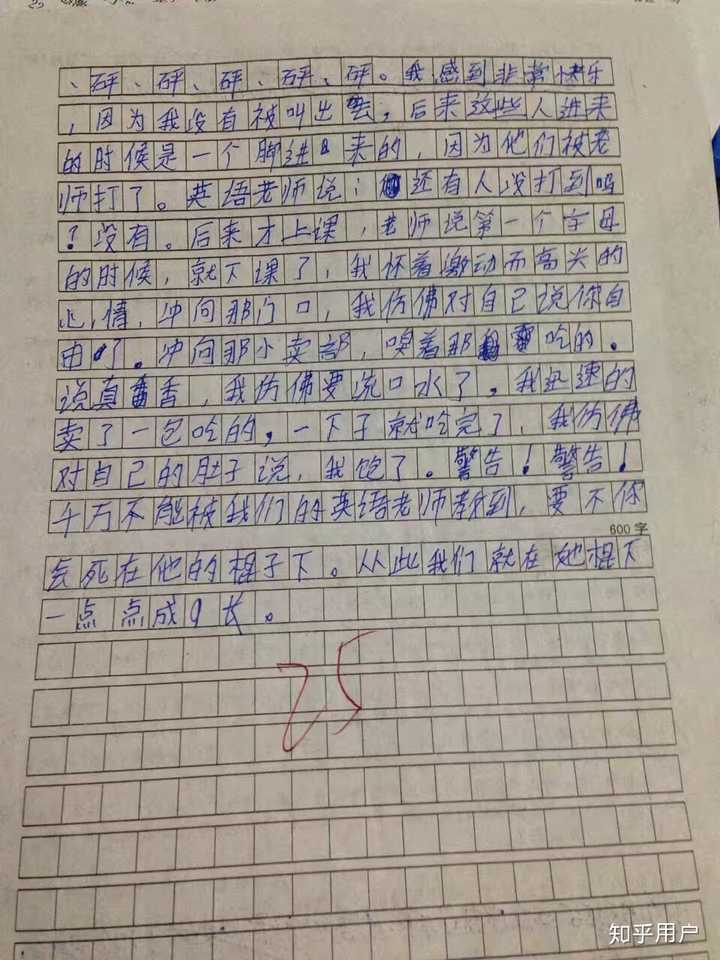 、砰、砰、砰、砰、砰。我感到非常快乐
，因为我没有被叫出去，后来这些人进来
的时候是一个脚进来的，因为他们被老
师打了。英语老师说：还有人没打到吗
？没有。后来才上课，老师说第一个字母
的时候，就下课了，我怀着激动而高兴的
心情，冲向那门口，我仿佛对自己说你自
由了。冲向那小卖部，嗅着那吃的。
说真香，我仿佛要流口水了，我迅速的
卖了一包吃的，一下子就吃完了，我仿佛
对自己的肚子说，我饱了。警告！警告！
千万不能被我们的英语老师教到，要不你
600字
会死在他的棍子下。从此我们就在她棍下
一点点成长。
25
知乎用户